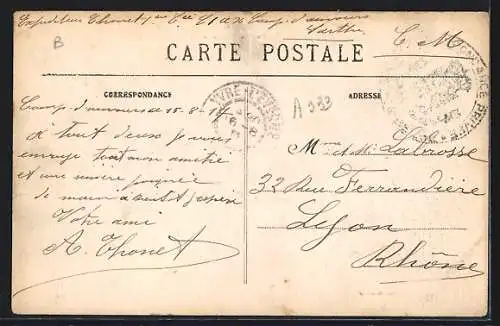 Expediteur Thonet
Camp d'auvours
Sarthe
B
C. M.
CARTE POSTALE
CORRESPONDANCE
ADRESSE
A 333
Camp d'auvours 15-8-17
A tous deux je vous
envoye toute mon amitié
et une sincère poignée
de main
Votre ami
A. Thonet
Mme et Mr Labrosse
32 Rue Ferrandière
Lyon
Rhône